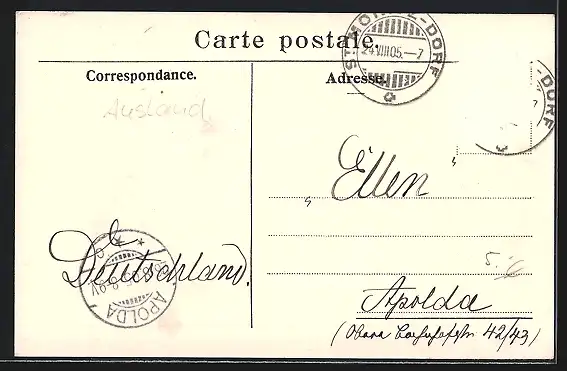 Carte postale.
ST MORITZ-DORF
24.VIII.05.—7
Correspondance.
Adresse.
-DORF
Ausland.
„Ellen"
Deutschland.
APOLDA
Apolda
(Obere Bahnhofstr. 42/43)